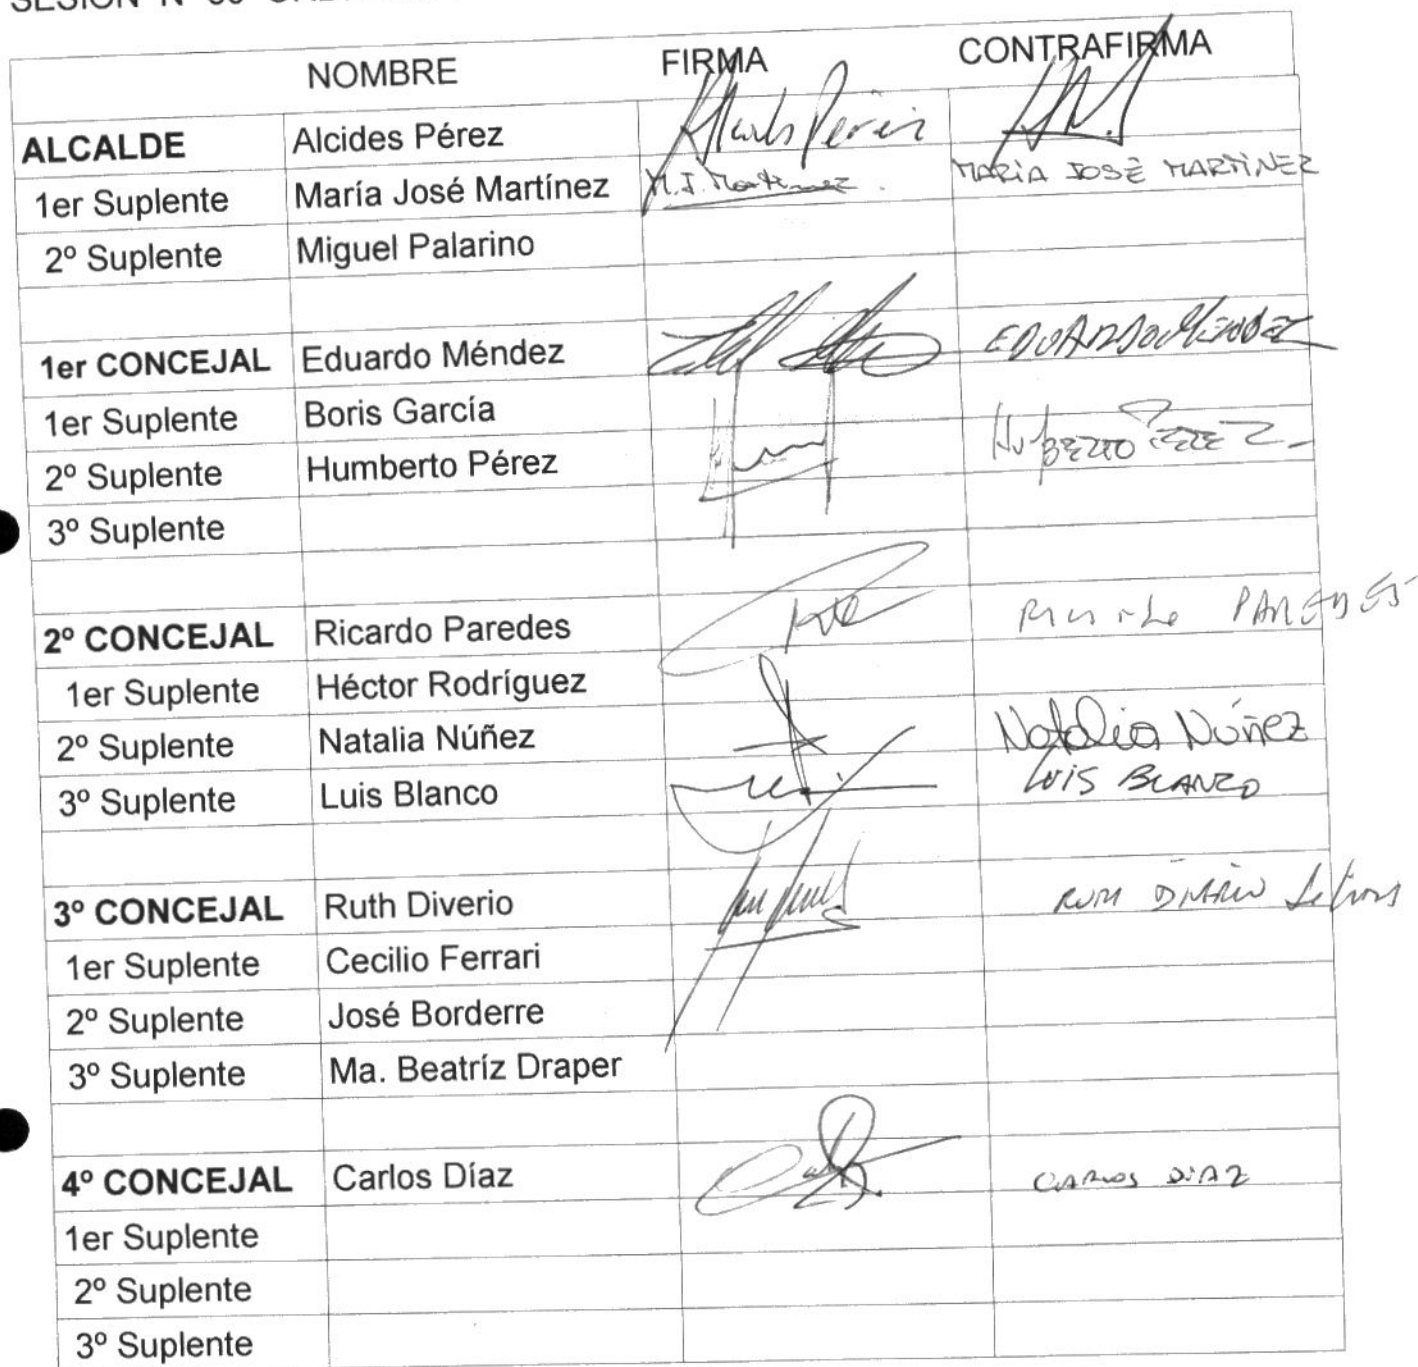 NOMBRE FIRMA CONTRAFIRMA
ALCALDE Alcides Pérez
1er Suplente María José Martínez M.J. Martínez. MARÍA JOSÉ MARTÍNEZ
2º Suplente Miguel Palarino
1er CONCEJAL Eduardo Méndez EDUARDO MENDEZ
1er Suplente Boris García
2º Suplente Humberto Pérez
3º Suplente
2º CONCEJAL Ricardo Paredes PAREDES
1er Suplente Héctor Rodríguez
2º Suplente Natalia Núñez Natalia Núñez
3º Suplente Luis Blanco LUIS BLANCO
3º CONCEJAL Ruth Diverio
1er Suplente Cecilio Ferrari
2º Suplente José Borderre
3º Suplente Ma. Beatríz Draper
4º CONCEJAL Carlos Díaz CARLOS DIAZ
1er Suplente
2º Suplente
3º Suplente